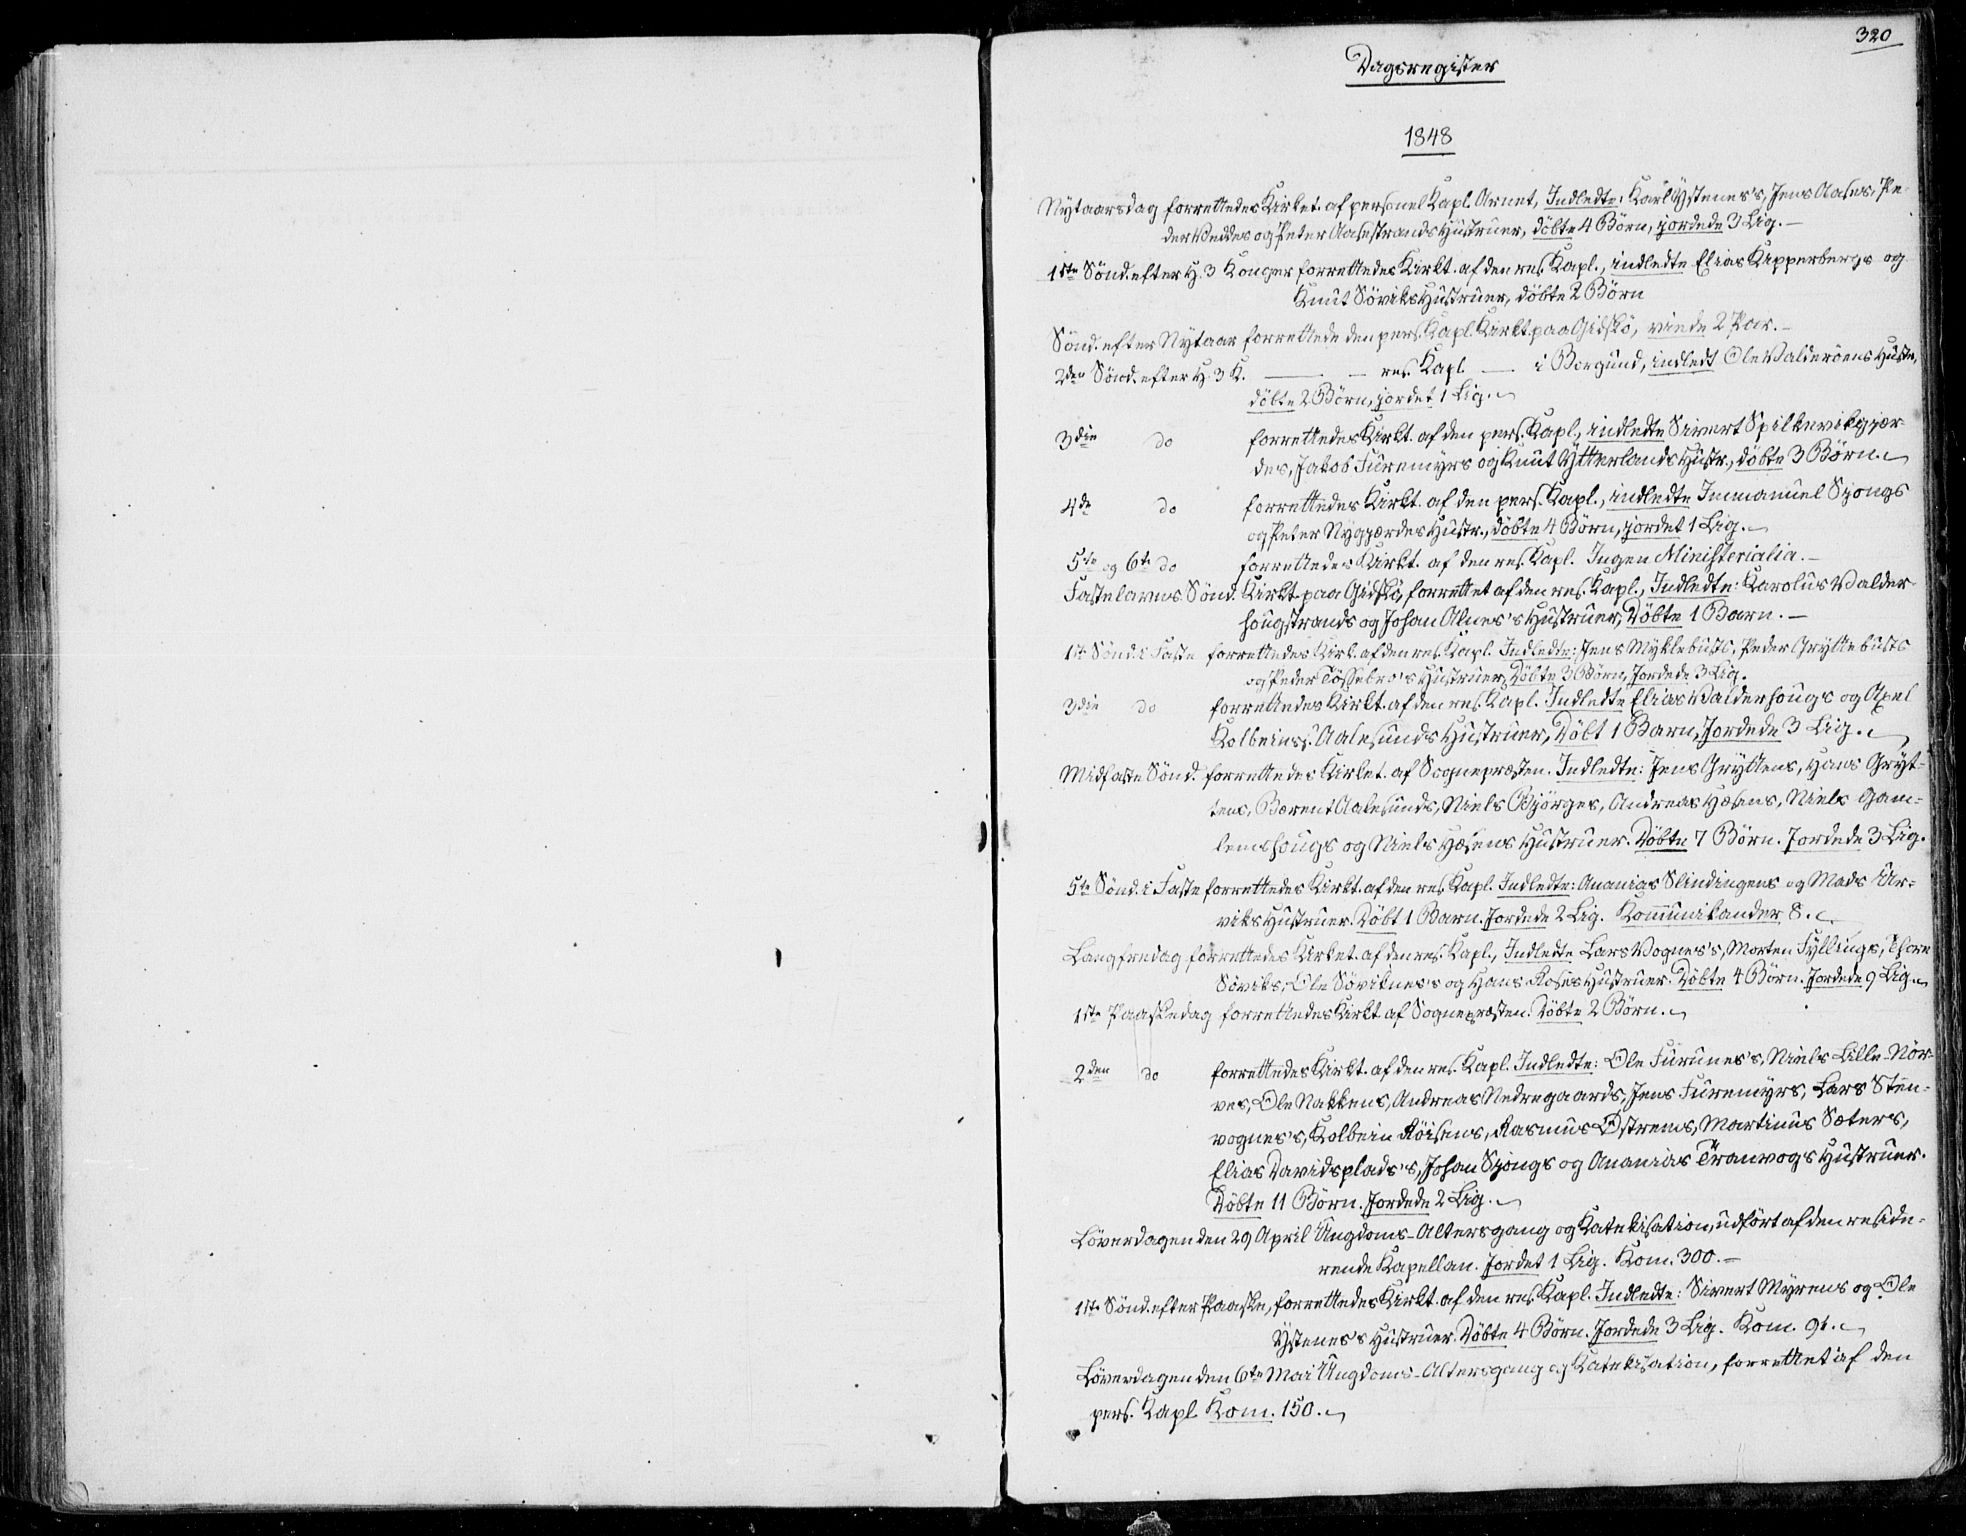 320
Dagsregister
1848
Nytaarsdag forrettedes Kirket. af personel Kapl. Arnet, Indledte: Karl Ystenes's, Jens Aases, Pe-
der Veddes og Peter Aasestrands Hustruer, döbte 4 Börn, jordede 3 Lig. —
1ste Sönd. efter H. 3 Konger forrettedes Kirkt. af den res. Kapl., indledte Elias Kipperbergs og
Knut Söviks Hustruer, döbte 2 Börn
Sönd. efter Nytaar forrettede den pers. Kapl. Kirkt. paa Gidskö, viede 2 Par. —
2den Sönd. efter H. 3 K. — — res. Kapl. — i Borgund, indledt Ole Valderöens Hustr,
döbte 2 Börn, jordet 1 Lig.
3die do forrettedes Kirkt. af den pers. Kapl., indledte Sivert Spilkevikgjær-
des, Jakob Furemyrs og Knut Ytterlands Hustr., döbte 3 Börn.
4de do forrettedes Kirkt. af den pers. Kapl., indledte Immanuel Sjongs
og Peter Nygjærdes Hustr., döbte 4 Börn, jordet 1 Lig. —
5te og 6te do forrettedes Kirkt. af den res. Kapl. Ingen Ministerialia. —
Fastelavns Sönd. Kirkt. paa Gidskö, forrettet af den res. Kapl., Indledte: Karolus Valder-
hougstrands og Johan Alnes's Hustruer, Döbte 1 Barn. —
1ste Sönd. i Faste forrettedes Kirkt. af den res. Kapl. Indledte: Jens Myklebusts, Peder Gryttebusts
og Peder Tössebro's Hustruer, Döbte 3 Börn, Jordede 3 Lig.
3die do forrettedes Kirkt. af den res. Kapl. Indledte Elias Valderhougs og Axel
Kolbeinss. Aalesunds Hustruer, Döbt 1 Barn, Jordede 3 Lig.
Midfaste Sönd. forrettedes Kirket. af Sognepræsten. Indledte: Jens Gryttens, Hans Gryt-
tens, Bærent Aalesunds, Niels Bjørges, Andreas Hæsens, Niels Gam-
lemshougs og Niels Hæsens Hustruer. Döbte 7 Börn. Jordede 3 Lig.
5te Sönd. i Faste forrettedes Kirkt. af den res. Kapl. Indledte: Ananias Slindingens og Mads Ur-
viks Hustruer. Döbt 1 Barn. Jordede 2 Lig. Kommunikander 8.
Langfredag forrettedes Kirket. af den res. Kapl., Indledte Lars Vognes's, Morten Fyllings, Thore
Söviks, Ole Söviknes's og Hans Roses Hustruer. Döbte 4 Börn. Jordede 9 Lig.
1ste Paaskedag forrettedes Kirkt. af Sognepræsten. Döbte 2 Börn.
2den do forrettedes Kirkt. af den res. Kapl. Indledte: Ole Furunes's, Niels Lille-Nör-
ves, Ole Nakkens, Andreas Nedregaards, Jens Furemyrs, Lars Sten-
vognes's, Kolbein Röisens, Rasmus Østrems, Martinus Sæters,
Elias Davidsplads's, Johan Sjongs og Ananias Tranvogs Hustruer.
Döbte 11 Börn. Jordede 2 Lig.
Löverdagen den 29 April Ungdoms-Altersgang og Katekisation, udfört af den reside-
rende Kapellan. Jordet 1 Lig. Kom. 300. —
1ste Sönd. efter Paaske, forrettedes Kirkt. af den res. Kapl. Indledte: Sivert Myrens og Ole
Ystenes's Hustruer. Döbte 4 Börn. Jordede 3 Lig. Kom. 91.
Löverdagen den 6te Mai Ungdoms-Altersgang og Katekisation, forrettet af den
pers. Kapl. Kom. 150.